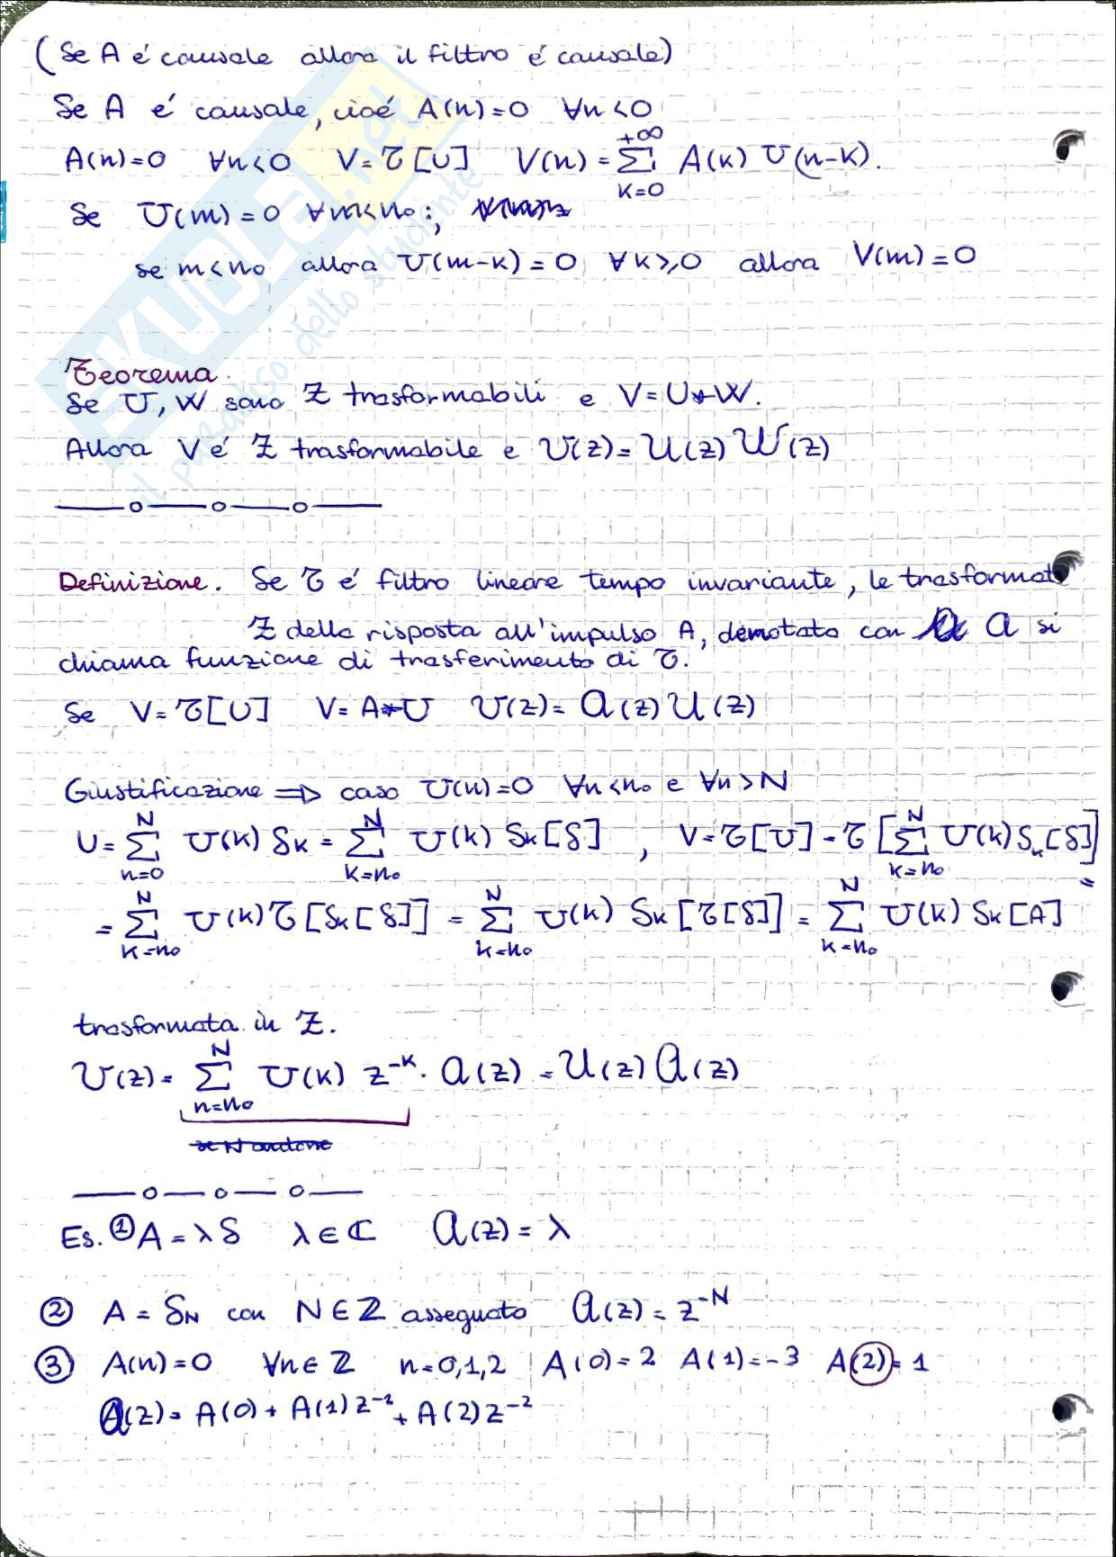 (Se A é causale allora il filtro é causale)
Se A é causale, cioé A(n)=0 ∀n<0
A(n)=0 ∀n<0 V=𝒯[U] V(n)=∑_{k=0}^{+∞} A(k) U(n-k).
Se U(m)=0 ∀m<n₀;
se m<n₀ allora U(m-k)=0 ∀k≥0 allora V(m)=0
Teorema.
Se U, W sono Z trasformabili e V=U*W.
Allora V é Z trasformabile e 𝒱(z)=𝒰(z)𝒲(z)
Definizione. Se 𝒯 é filtro lineare tempo invariante, le trasformat
Z della risposta all'impulso A, denotato con 𝒜 si
chiama funzione di trasferimento di 𝒯.
Se V=𝒯[U] V=A*U 𝒱(z)=𝒜(z)𝒰(z)
Giustificazione ⇒ caso U(n)=0 ∀n<n₀ e ∀n>N
U=∑_{n=0}^{N} U(k) δₖ = ∑_{k=n₀}^{N} U(k) Sₖ[δ] , V=𝒯[U]=𝒯[∑_{k=n₀}^{N} U(k) Sₖ[δ]] =
= ∑_{k=n₀}^{N} U(k) 𝒯[Sₖ[δ]] = ∑_{k=n₀}^{N} U(k) Sₖ[𝒯[δ]] = ∑_{k=n₀}^{N} U(k) Sₖ[A]
trasformata in Z.
𝒱(z)= ∑_{n=n₀}^{N} U(k) z^{-k}. 𝒜(z) = 𝒰(z)𝒜(z)
Es. ① A=λδ λ∈ℂ 𝒜(z)=λ
② A=δ_N con N∈ℤ assegnato 𝒜(z)=z^{-N}
③ A(n)=0 ∀n∈ℤ n=0,1,2 A(0)=2 A(1)=-3 A(2)=1
𝒜(z)= A(0)+A(1)z^{-1}+A(2)z^{-2}
SKUOLA.net
il paradiso dello studente